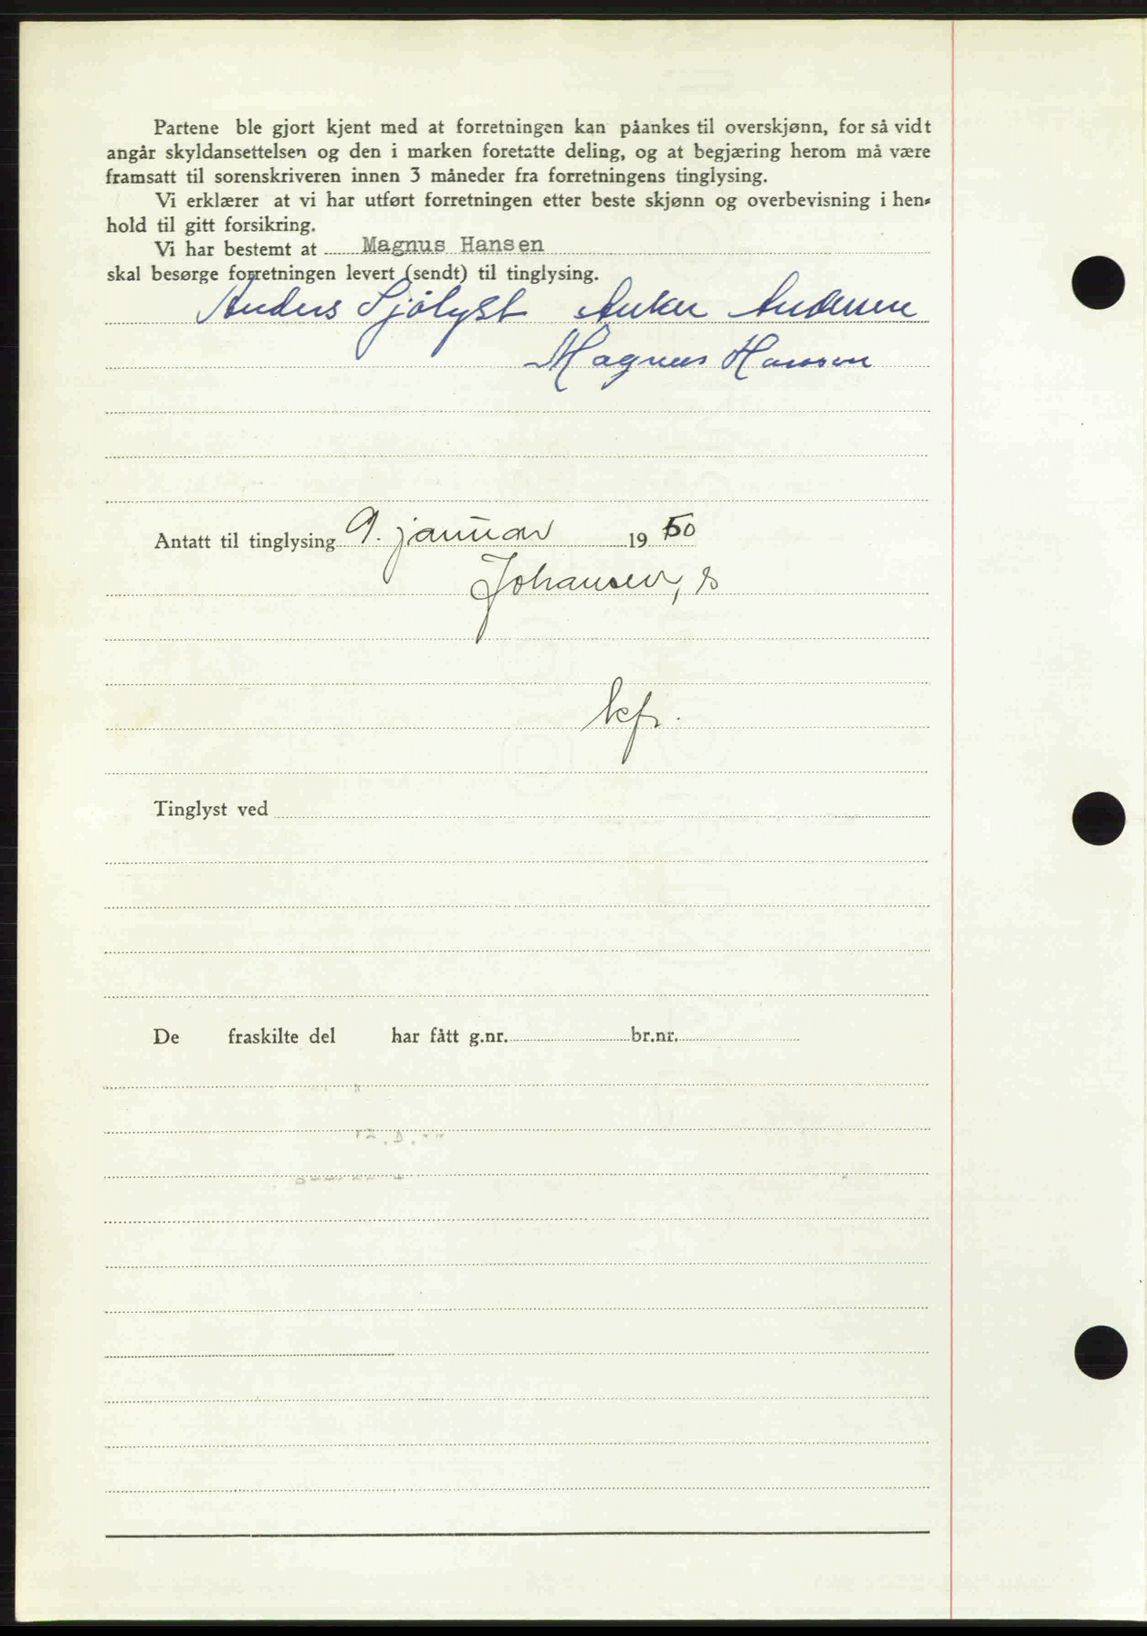 Partene ble gjort kjent med at forretningen kan påankes til overskjønn, for så vidt
angår skyldansettelsen og den i marken foretatte deling, og at begjæring herom må være
framsatt til sorenskriveren innen 3 måneder fra forretningens tinglysing.
Vi erklærer at vi har utført forretningen etter beste skjønn og overbevisning i hen-
hold til gitt forsikring.
Vi har bestemt at Magnus Hansen
skal besørge forretningen levert (sendt) til tinglysing.
Anders Sjölyst Anker Andersen
Magnus Hansen
Antatt til tinglysing 9. januar 1950
Johansen, s
kfr.
Tinglyst ved
De fraskilte del har fått g.nr. br.nr.